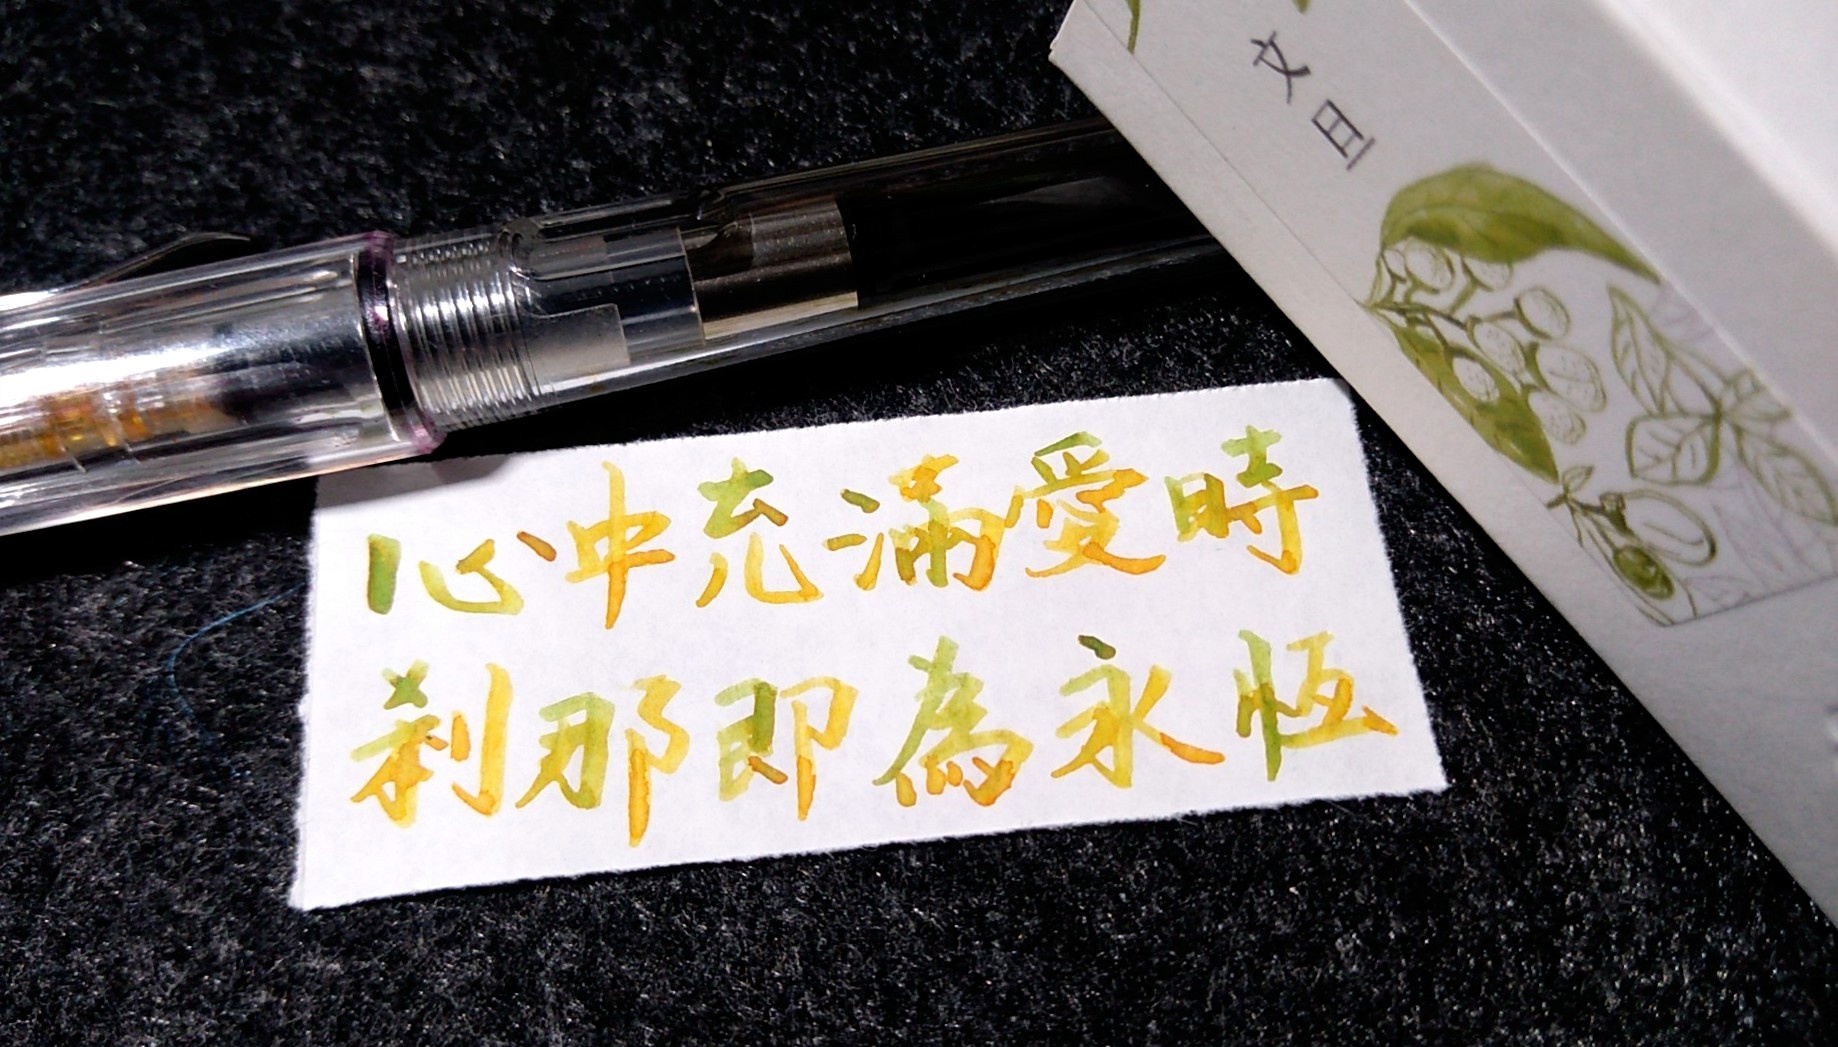 文旦
心中充滿愛時
剎那即為永恆